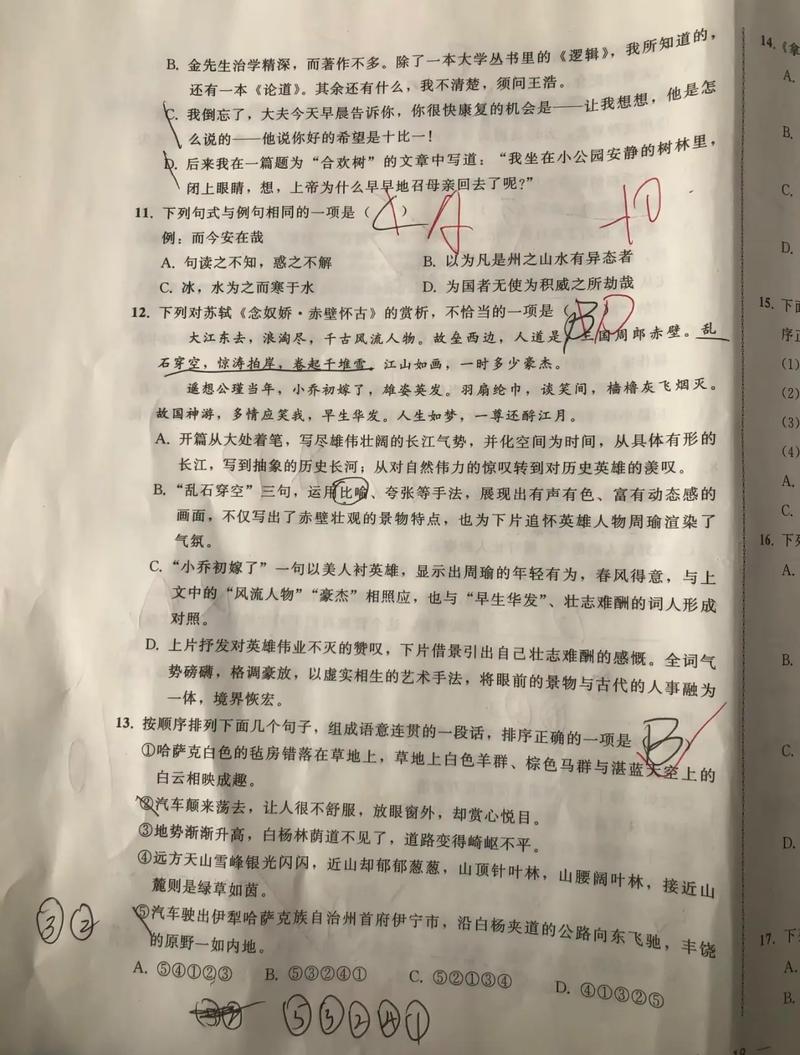 B. 金先生治学精深，而著作不多。除了一本大学丛书里的《逻辑》，我所知道的，
还有一本《论道》。其余还有什么，我不清楚，须问王浩。
C. 我倒忘了，大夫今天早晨告诉你，你很快康复的机会是——让我想想，他是怎
么说的——他说你好的希望是十比一！
D. 后来我在一篇题为“合欢树”的文章中写道：“我坐在小公园安静的树林里，
闭上眼睛，想，上帝为什么早早地召母亲回去了呢?”
11. 下列句式与例句相同的一项是（ ）
A
例：而今安在哉
A. 句读之不知，惑之不解 B. 以为凡是州之山水有异态者
C. 冰，水为之而寒于水 D. 为国者无使为积威之所劫哉
12. 下列对苏轼《念奴娇·赤壁怀古》的赏析，不恰当的一项是（B
D
大江东去，浪淘尽，千古风流人物。故垒西边，人道是，三国周郎赤壁。乱
石穿空，惊涛拍岸，卷起千堆雪。江山如画，一时多少豪杰。
遥想公瑾当年，小乔初嫁了，雄姿英发。羽扇纶巾，谈笑间，樯橹灰飞烟灭。
故国神游，多情应笑我，早生华发。人生如梦，一尊还酹江月。
A. 开篇从大处着笔，写尽雄伟壮阔的长江气势，并化空间为时间，从具体有形的
长江，写到抽象的历史长河；从对自然伟力的惊叹转到对历史英雄的羡叹。
B. “乱石穿空”三句，运用比喻、夸张等手法，展现出有声有色、富有动态感的
画面，不仅写出了赤壁壮观的景物特点，也为下片追怀英雄人物周瑜渲染了
气氛。
C. “小乔初嫁了”一句以美人衬英雄，显示出周瑜的年轻有为，春风得意，与上
文中的“风流人物”“豪杰”相照应，也与“早生华发”、壮志难酬的词人形成
对照。
D. 上片抒发对英雄伟业不灭的赞叹，下片借景引出自己壮志难酬的感慨。全词气
势磅礴，格调豪放，以虚实相生的艺术手法，将眼前的景物与古代的人事融为
一体，境界恢宏。
13. 按顺序排列下面几个句子，组成语意连贯的一段话，排序正确的一项是 B
①哈萨克白色的毡房错落在草地上，草地上白色羊群、棕色马群与湛蓝天空上的
白云相映成趣。
②汽车颠来荡去，让人很不舒服，放眼窗外，却赏心悦目。
③地势渐渐升高，白杨林荫道不见了，道路变得崎岖不平。
④远方天山雪峰银光闪闪，近山却郁郁葱葱，山顶针叶林，山腰阔叶林，接近山
麓则是绿草如茵。
⑤汽车驶出伊犁哈萨克族自治州首府伊宁市，沿白杨夹道的公路向东飞驰，丰饶
的原野一如内地。
③②
A. ⑤④①②③ B. ⑤③②④① C. ⑤②①③④ D. ④①③②⑤
⑤③②④①
14. 《拿
A.
B.
C.
D.
15. 下面
序正
(1)
(2)
(3)
(4)
A.
C.
16. 下列
A.
B.
C.
D.
17. 下
A.
B.